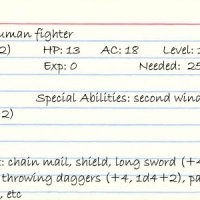 human fighter
2) HP: 13 AC: 18 Level:
Exp: 0 Needed: 25
Special Abilities: second wind
2)
: chain mail, shield, long sword (+4
throwing daggers (+4, 1d4+2), pa
, etc